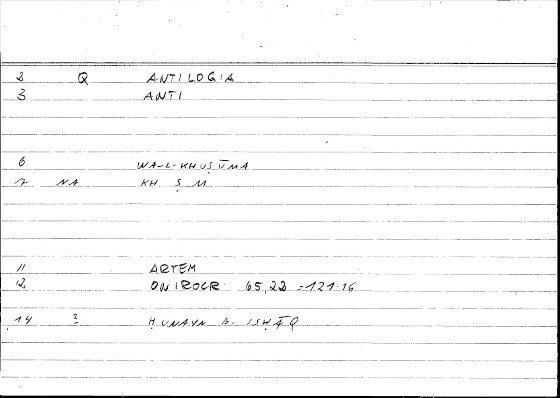 2 Q ANTILOGIA
3 ANTI
6 WA-L-KHUṢŪMA
7 NA KH Ṣ M
11 ARTEM
12 ONIROCR. 65,22 = 121.16
14 ? ḤUNAYN B. ISḤĀQ